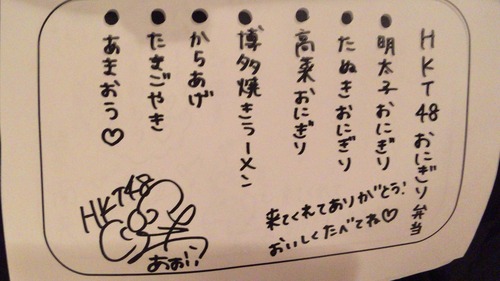 HKT48おにぎり弁当
●明太子おにぎり
●たぬきおにぎり
●高菜おにぎり
●博多焼きラーメン
●からあげ
●たまごやき
●あまおう♡
来てくれてありがとう!
おいしくたべてね♡
HKT48
あおい